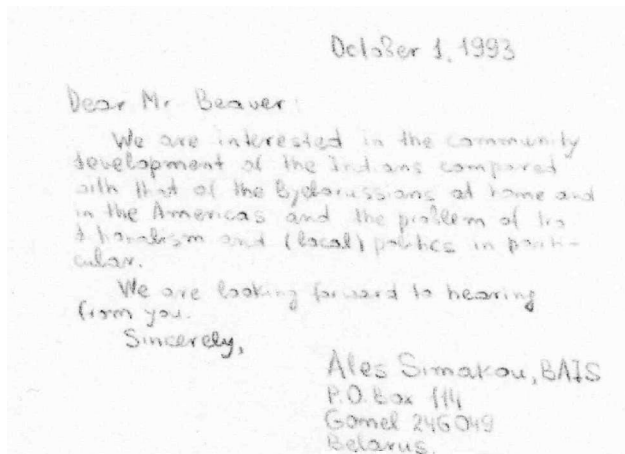 October 1, 1993
Dear Mr. Beaver:
We are interested in the community
development of the Indians compared
with that of the Byelorussians at home and
in the Americas and the problem of tra-
ditionalism and (local) politics in parti-
cular.
We are looking forward to hearing
from you.
Sincerely,
Ales Simakou, BAIS
P.O. Box 114
Gomel 246049
Belarus.